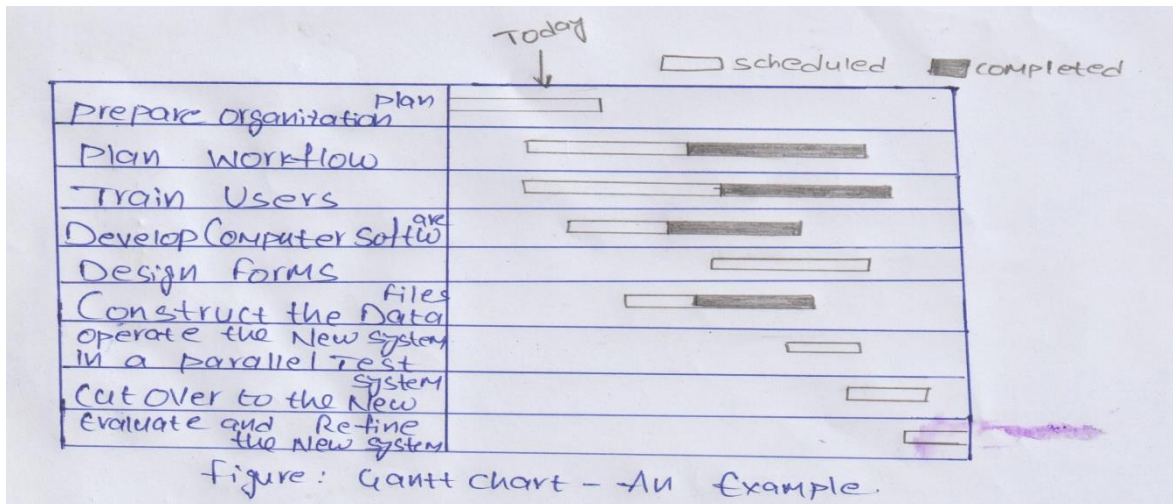 Today
scheduled completed
plan
prepare organization
Plan Workflow
Train Users
are
Develop Computer Softw
Design forms
files
Construct the Data
operate the New System
in a parallel Test
System
Cut Over to the New
Evaluate and Re-fine
the New System
figure: Gantt chart - An Example.